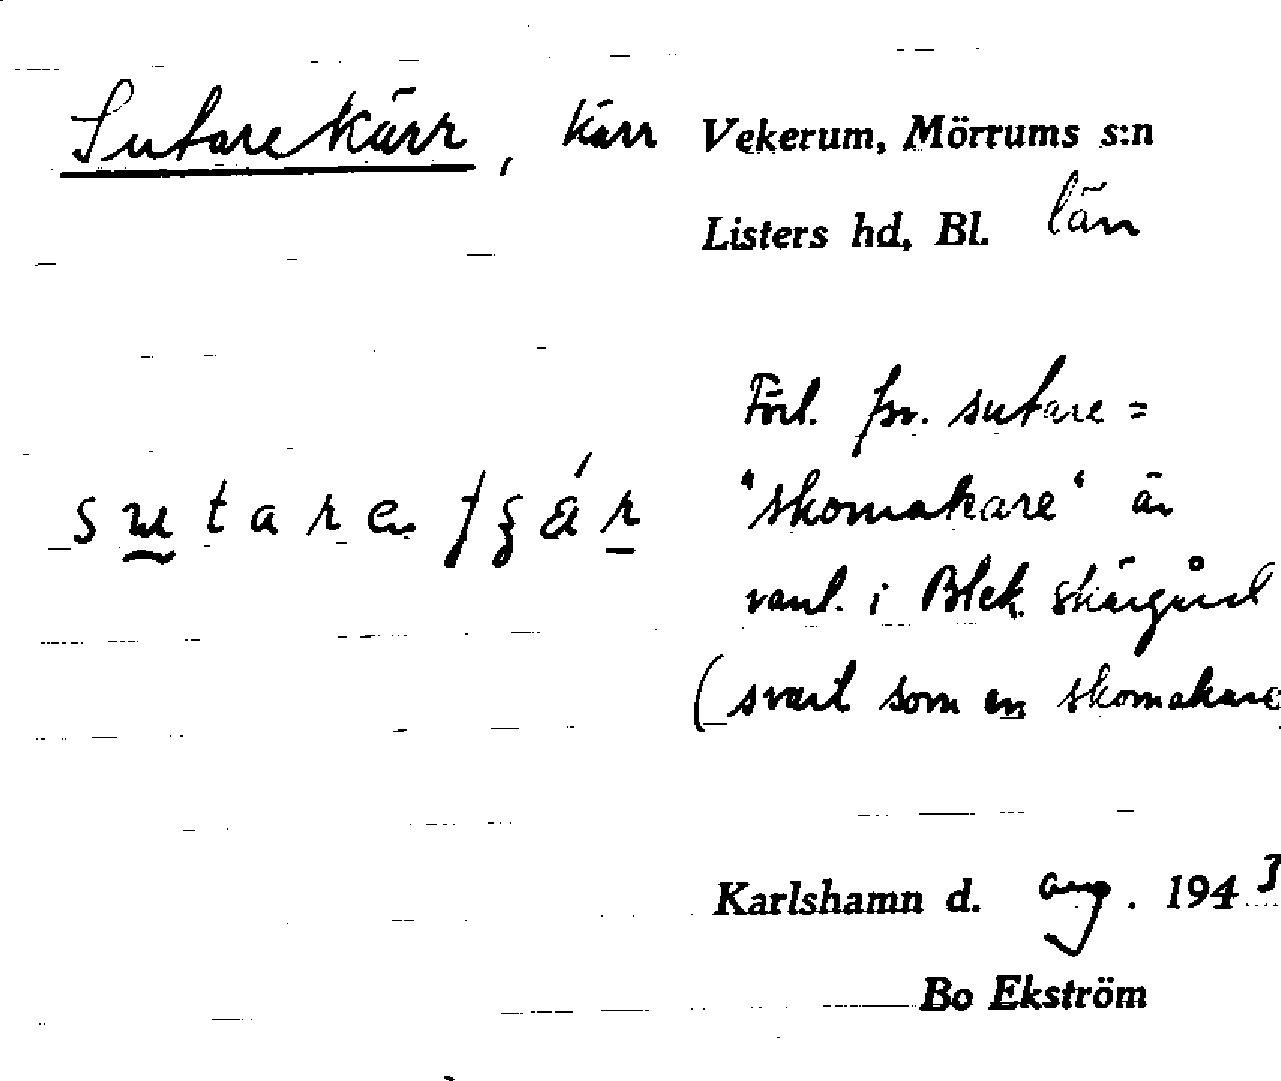 Sutarekärr, kärr Vekerum, Mörrums s:n
Listers hd, Bl. län
Förl. fsv. sutare =
"skomakare" är
vanl. i Blek. skärgård
(svart som en skomakare
Karlshamn d. aug. 1943
Bo Ekström